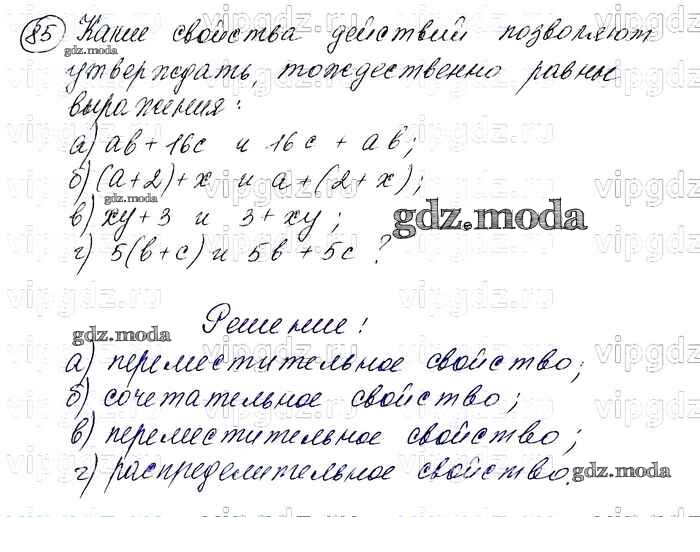 85) Какие свойства действий позволяют
утверждать, тождественно равны
выражения:
а) ab + 16c и 16c + ab;
б) (a+2)+x и a+(2+x);
в) xy+3 и 3+xy;
г) 5(b+c) и 5b+5c ?
gdz.moda
Решение:
а) переместительное свойство;
б) сочетательное свойство;
в) переместительное свойство;
г) распределительное свойство.
gdz.moda